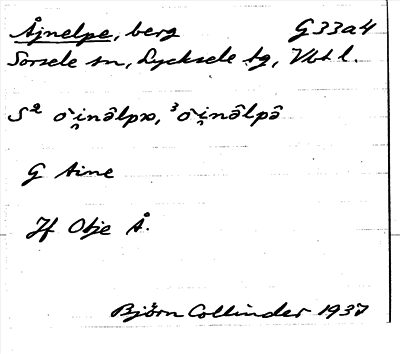 Åjnelpe, berg G33a4
Sorsele sn, Lycksele tg, Vbt l.
S² o`i̯nâlpɒ, ³o`i̯nâlpâ
G Aine
Jf Obje Å.
Björn Collinder 1937